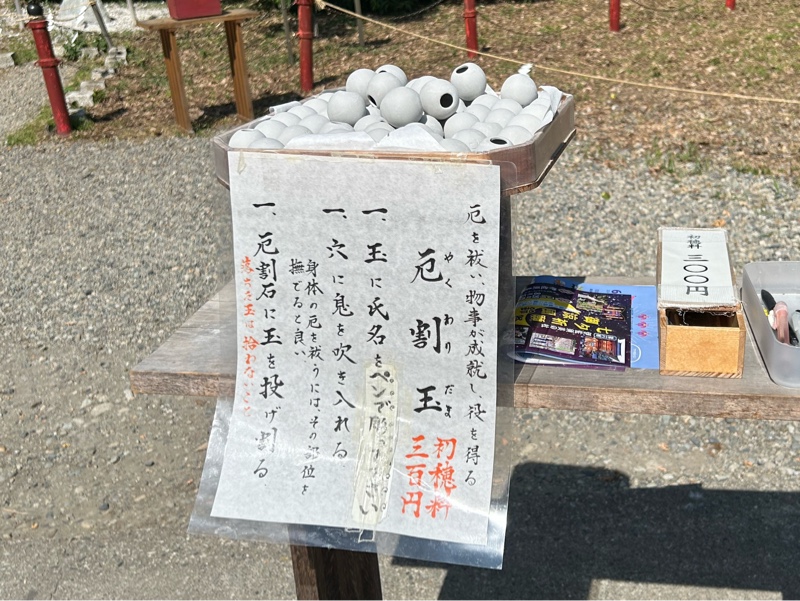 厄を祓い、物事が成就し、役を得る
厄割玉
やくわりだま
初穂料
三百円
一、玉に氏名をペンで
一、穴に息を吹き入れる
身体の厄を祓うには、その部位を
撫でると良い
一、厄割石に玉を投げ割る
落ちた玉は拾わないこと
初穂料
三〇〇円